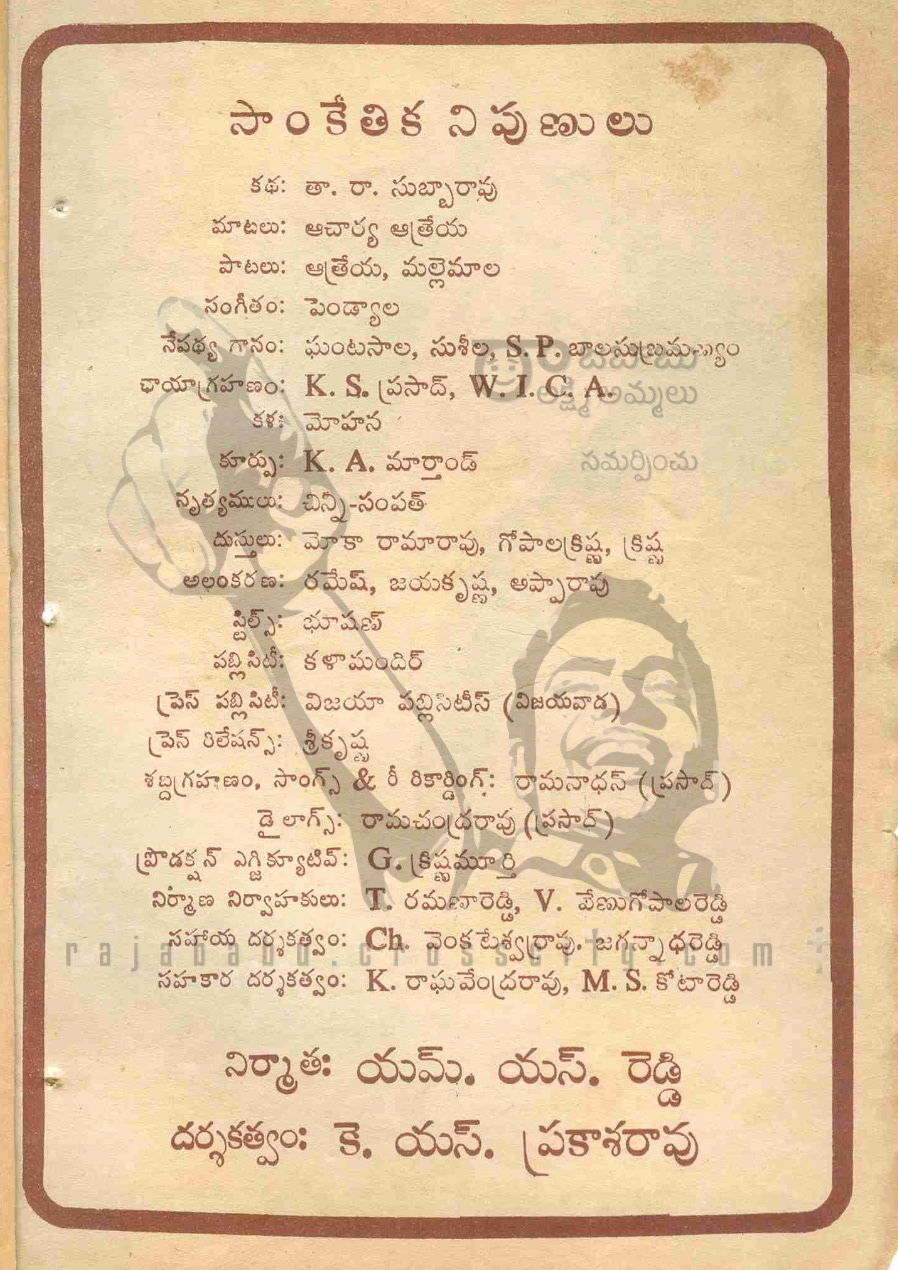 సాంకేతిక నిపుణులు
కథ: తా. రా. సుబ్బారావు
మాటలు: ఆచార్య ఆత్రేయ
పాటలు: ఆత్రేయ, మల్లెమాల
సంగీతం: పెండ్యాల
నేపథ్య గానం: ఘంటసాల, సుశీల, S. P. బాలసుబ్రమణ్యం
ఛాయాగ్రహణం: K. S. ప్రసాద్, W. I. C. A.
లక్ష్మీ అమ్మలు
కళ: మోహన
కూర్పు: K. A. మార్తాండ్
సమర్పించు
నృత్యములు: చిన్ని-సంపత్
దుస్తులు: మోకా రామారావు, గోపాలక్రిష్ణ, క్రిష్ణ
అలంకరణ: రమేష్, జయకృష్ణ, అప్పారావు
స్టిల్స్: భూషణ్
పబ్లిసిటీ: కళామందిర్
ప్రెస్ పబ్లిసిటీ: విజయా పబ్లిసిటీస్ (విజయవాడ)
ప్రెస్ రిలేషన్స్: శ్రీకృష్ణ
శబ్దగ్రహణం, సాంగ్స్ & రీ రికార్డింగ్: రామనాధన్ (ప్రసాద్)
డైలాగ్స్: రామచంద్రరావు (ప్రసాద్)
ప్రొడక్షన్ ఎగ్జిక్యూటివ్: G. క్రిష్ణమూర్తి
నిర్మాణ నిర్వాహకులు: T. రమణారెడ్డి, V. వేణుగోపాలరెడ్డి
సహాయ దర్శకత్వం: Ch. వెంకటేశ్వర్రావు. జగన్నాధరెడ్డి
rajababu.crosscity.com
సహకార దర్శకత్వం: K. రాఘవేంద్రరావు, M. S. కోటారెడ్డి
నిర్మాత: యమ్. యస్. రెడ్డి
దర్శకత్వం: కె. యస్. ప్రకాశరావు